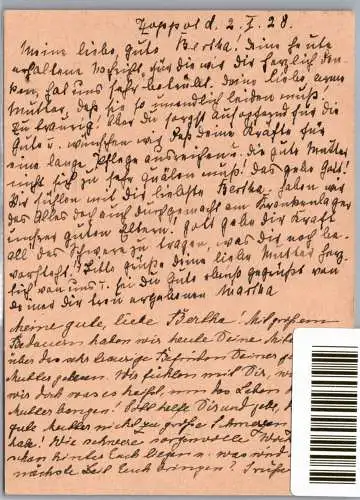 Zoppot d. 2. I. 28.
Meine liebe, gute Bertha! Deine heute
erhaltene Nachricht, für die wir Dir herzlich dan-
ken, hat uns sehr betrübt. Deine liebe, arme
Mutter, daß sie so unendlich leiden muß!
Zu traurig! Aber Du sorgst aufopfernd für die
Gute u. wünschen wir, daß Deine Kräfte für
eine lange Pflege ausreichen u. die gute Mutter
nicht sich zu sehr quälen muß! Das gebe Gott!
Wir fühlen mit Dir liebste Bertha, haben wir
das Alles doch auch durchgemacht am Krankenlager
unsrer guten Eltern! Gott gebe Dir Kraft
all' das Schwere zu tragen, was Dir noch be-
vorsteht! Bitte grüße Deine liebe Mutter herz-
lich von uns u. sei Du Gute ebenso gegrüßt von
Deiner Dir treu ergebenen Martha
Meine gute, liebe Bertha! Mit großem
Bedauern haben wir heute Deine
über das sehr traurige Befinden Deiner
Mutter gelesen. Wir fühlen mit Dir,
wir doch was es heißt, um das Leben
Mutter bangen! Gott helfe Dir und gebe,
gute Mutter nicht zu große Schmerzen
habe! Wie schwere sorgenvolle
hinter Euch liegen u. was wird
nächste Zeit Euch bringen?